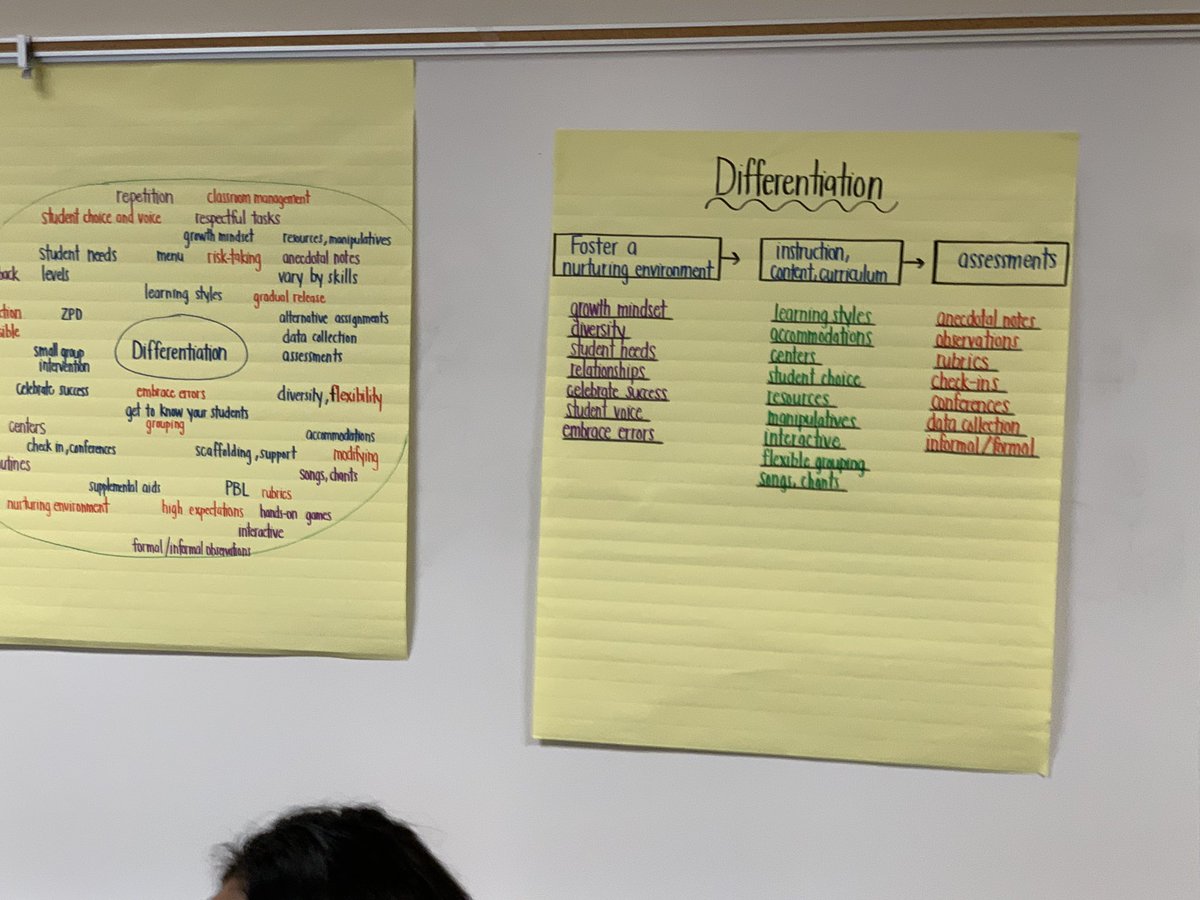 repetition classroom management
student choice and voice respectful tasks
growth mindset resources, manipulatives
student needs menu risk-taking anecdotal notes
back levels vary by skills
learning styles gradual release
ZPD alternative assignments
data collection
small group Differentiation assessments
intervention
celebrate success embrace errors diversity, flexibility
get to know your students
centers grouping
check in, conferences scaffolding, support accommodations
modifying
songs, chants
supplemental aids PBL rubrics
nurturing environment high expectations hands-on games
interactive
formal/informal observations
Differentiation
Foster a
nurturing environment
growth mindset
diversity
student needs
relationships
celebrate success
student voice
embrace errors
instruction,
content, curriculum
learning styles
accommodations
centers
student choice
resources
manipulatives
interactive
flexible grouping
songs, chants
assessments
anecdotal notes
observations
rubrics
check-ins
conferences
data collection
informal/formal